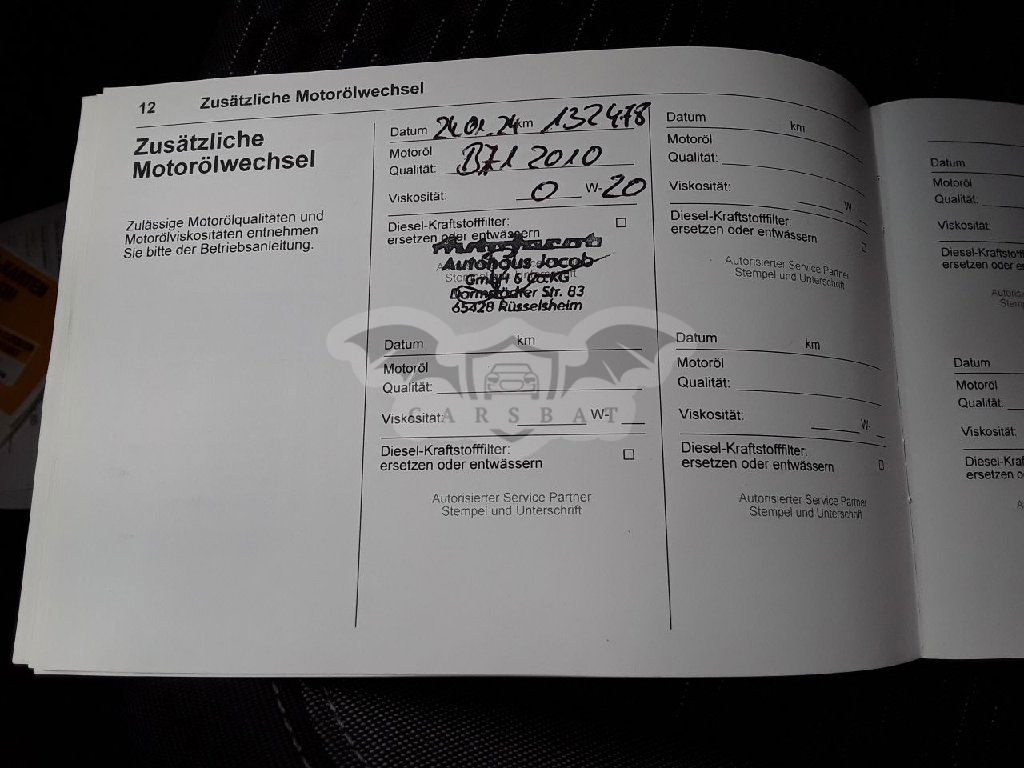 12 Zusätzliche Motorölwechsel
Zusätzliche
Motorölwechsel
Zulässige Motorölqualitäten und
Motorölviskositäten entnehmen
Sie bitte der Betriebsanleitung.
Datum 24.01.24 km 132478
Motoröl
Qualität: B71 2010
Viskosität: 0 W- 20
Diesel-Kraftstofffilter:
ersetzen oder entwässern
Autohaus Jacob
GmbH & Co.KG
Darmstädter Str. 83
65428 Rüsselsheim
Datum km
Motoröl
Qualität:
Viskosität: W-
Diesel-Kraftstofffilter:
ersetzen oder entwässern
Autorisierter Service Partner
Stempel und Unterschrift
CARSBAT
Datum km
Motoröl
Qualität:
Viskosität: W-
Diesel-Kraftstofffilter
ersetzen oder entwässern
Autorisierter Service Partner
Stempel und Unterschrift
Datum km
Motoröl
Qualität:
Viskosität: W-
Diesel-Kraftstofffilter:
ersetzen oder entwässern
Autorisierter Service Partner
Stempel und Unterschrift
Datum
Motoröl
Qualität:
Viskosität:
ersetzen oder en
Datum
Motoröl
Qualität:
Viskosität: